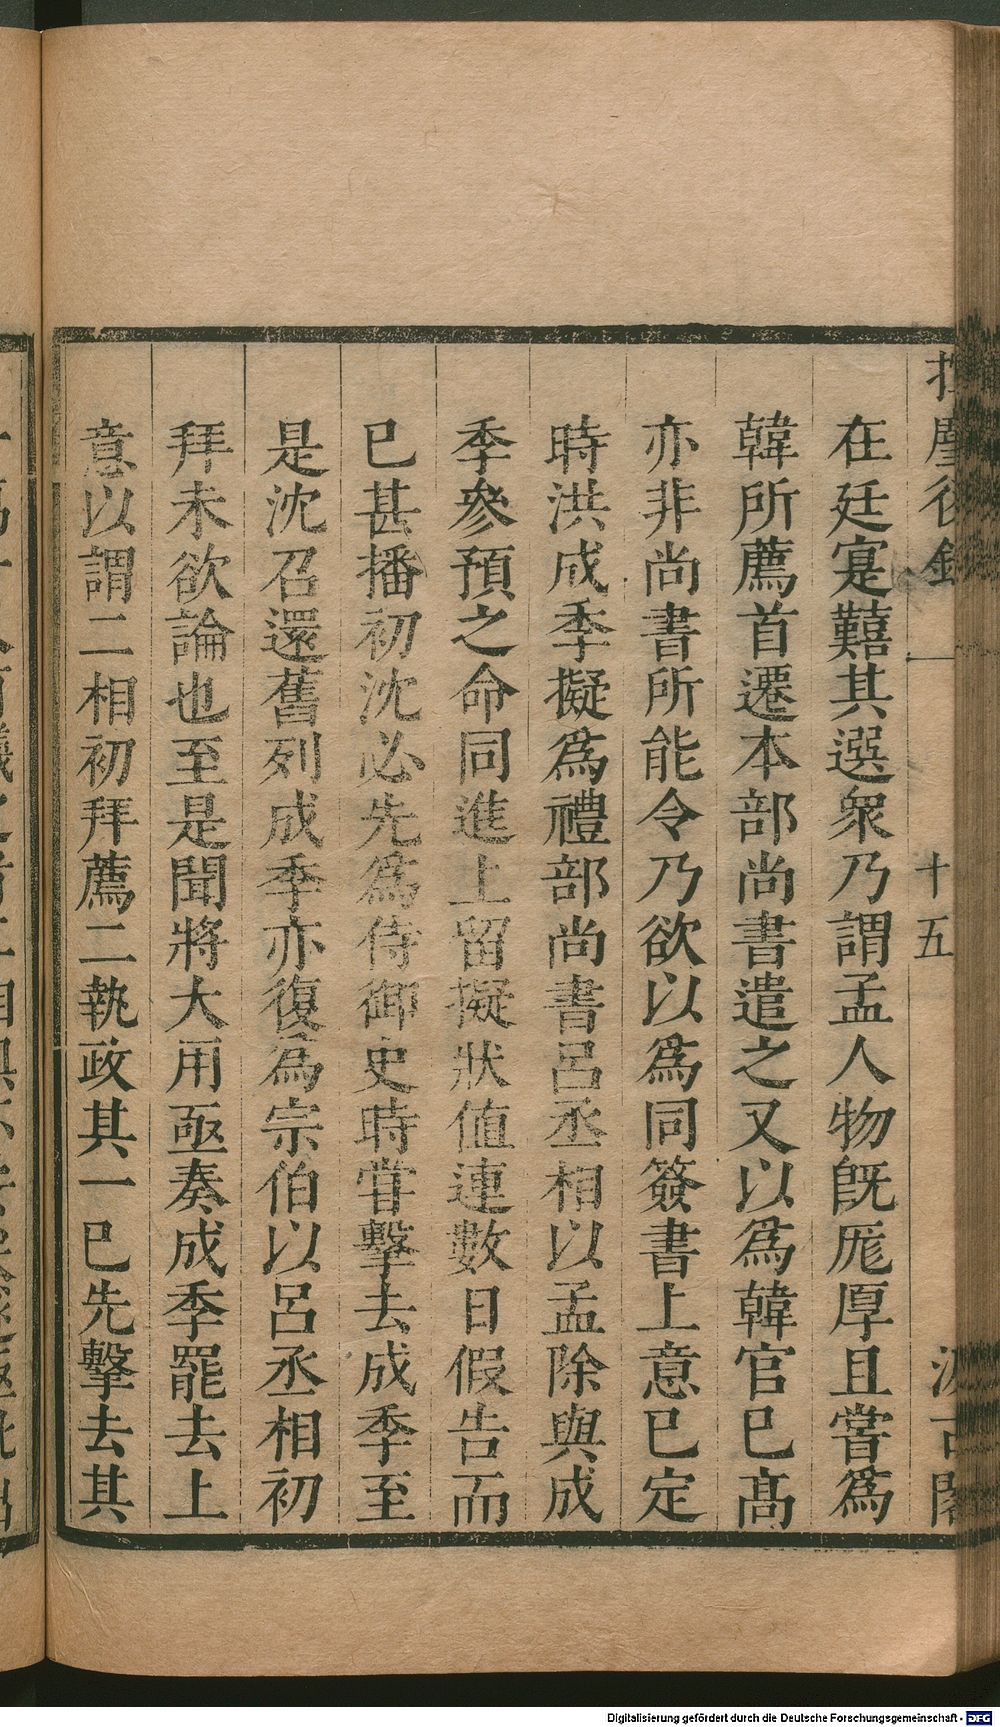 揮麈後錄 一 十五 汲古閣
在廷寔囏其選衆乃謂孟人物旣厖厚且嘗爲
韓所薦首遷本部尚書遣之又以爲韓官已髙
亦非尚書所能令乃欲以爲同簽書上意已定
時洪成季擬爲禮部尚書呂丞相以孟除與成
季參預之命同進上留擬狀値連數日假告而
已甚播初沈必先爲侍御史時甞擊去成季至
是沈召還舊列成季亦復爲宗伯以呂丞相初
拜未欲論也至是聞將大用亟奏成季罷去上
意以謂二相初拜薦二執政其一已先擊去其
Digitalisierung gefördert durch die Deutsche Forschungsgemeinschaft - DFG